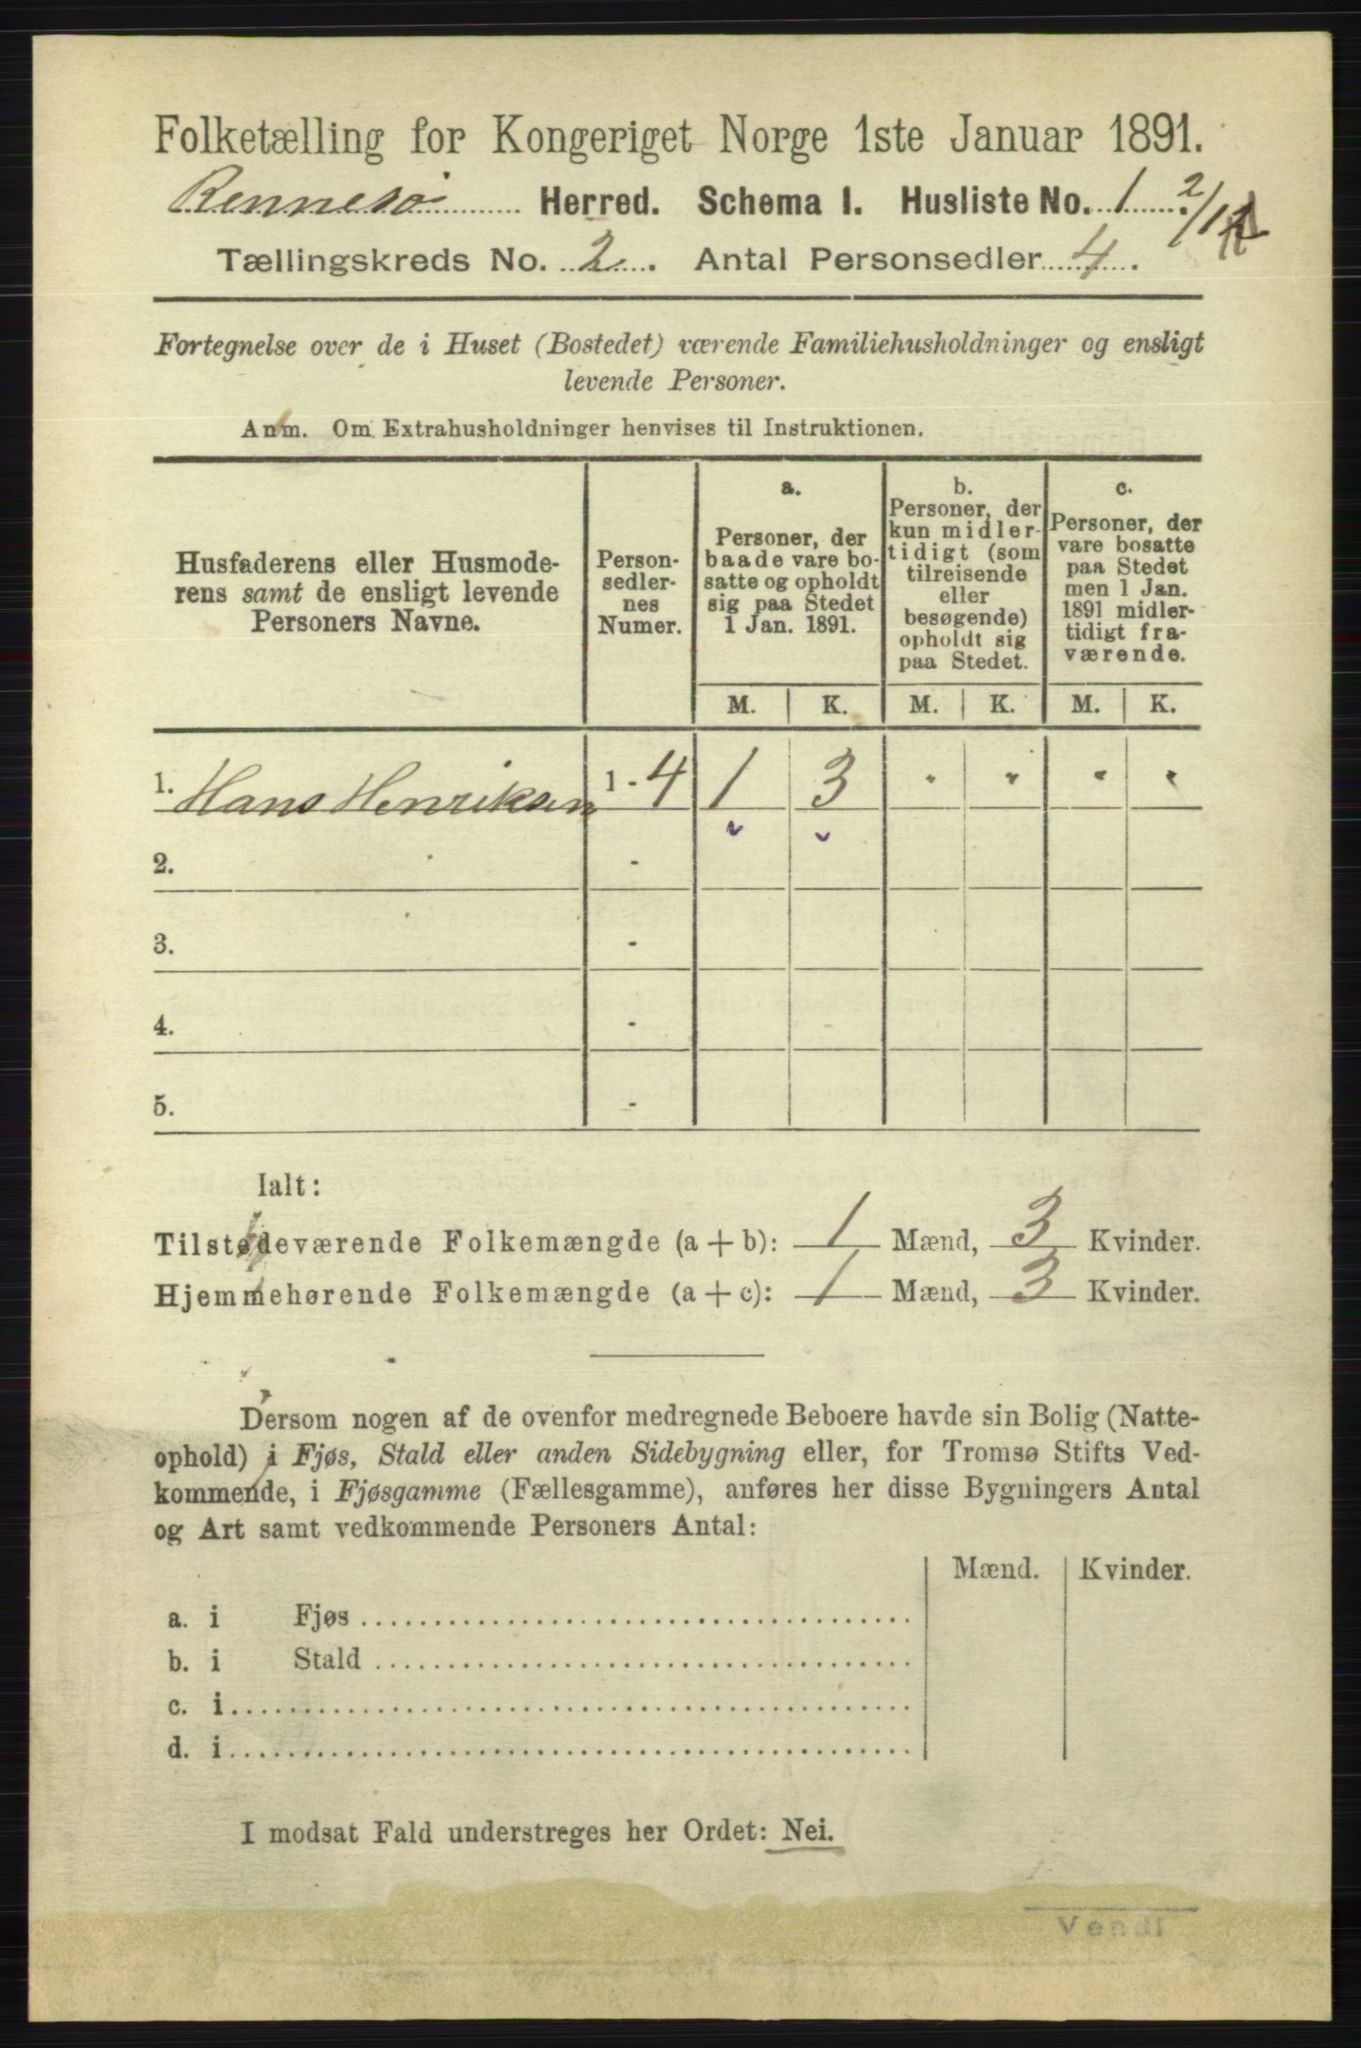 Folketælling for Kongeriget Norge 1ste Januar 1891.
Rennesø Herred. Schema I. Husliste No. 1 2/11
Tællingskreds No. 2. Antal Personsedler 4.
Fortegnelse over de i Huset (Bostedet) værende Familiehusholdninger og ensligt
levende Personer.
Anm. Om Extrahusholdninger henvises til Instruktionen.
Husfaderens eller Husmode-
rens samt de ensligt levende
Personers Navne.
Person-
sedler-
nes
Numer.
a.
Personer, der
baade vare bo-
satte og opholdt
sig paa Stedet
1 Jan. 1891.
b.
Personer, der
kun midler-
tidigt (som
tilreisende
eller
besøgende)
opholdt sig
paa Stedet.
c.
Personer, der
vare bosatte
paa Stedet
men 1 Jan.
1891 midler-
tidigt fra-
værende.
M. K. M. K. M. K.
1. Hans Henriksen 1 - 4 1 3 " " " "
2. -
3. -
4. -
5. -
Ialt:
Tilstedeværende Folkemængde (a + b): 1 Mænd, 3 Kvinder.
Hjemmehørende Folkemængde (a + c): 1 Mænd, 3 Kvinder.
Dersom nogen af de ovenfor medregnede Beboere havde sin Bolig (Natte-
ophold) i Fjøs, Stald eller anden Sidebygning eller, for Tromsø Stifts Ved-
kommende, i Fjøsgamme (Fællesgamme), anføres her disse Bygningers Antal
og Art samt vedkommende Personers Antal:
Mænd. Kvinder.
a. i Fjøs
b. i Stald
c. i
d. i
I modsat Fald understreges her Ordet: Nei.
Vend!